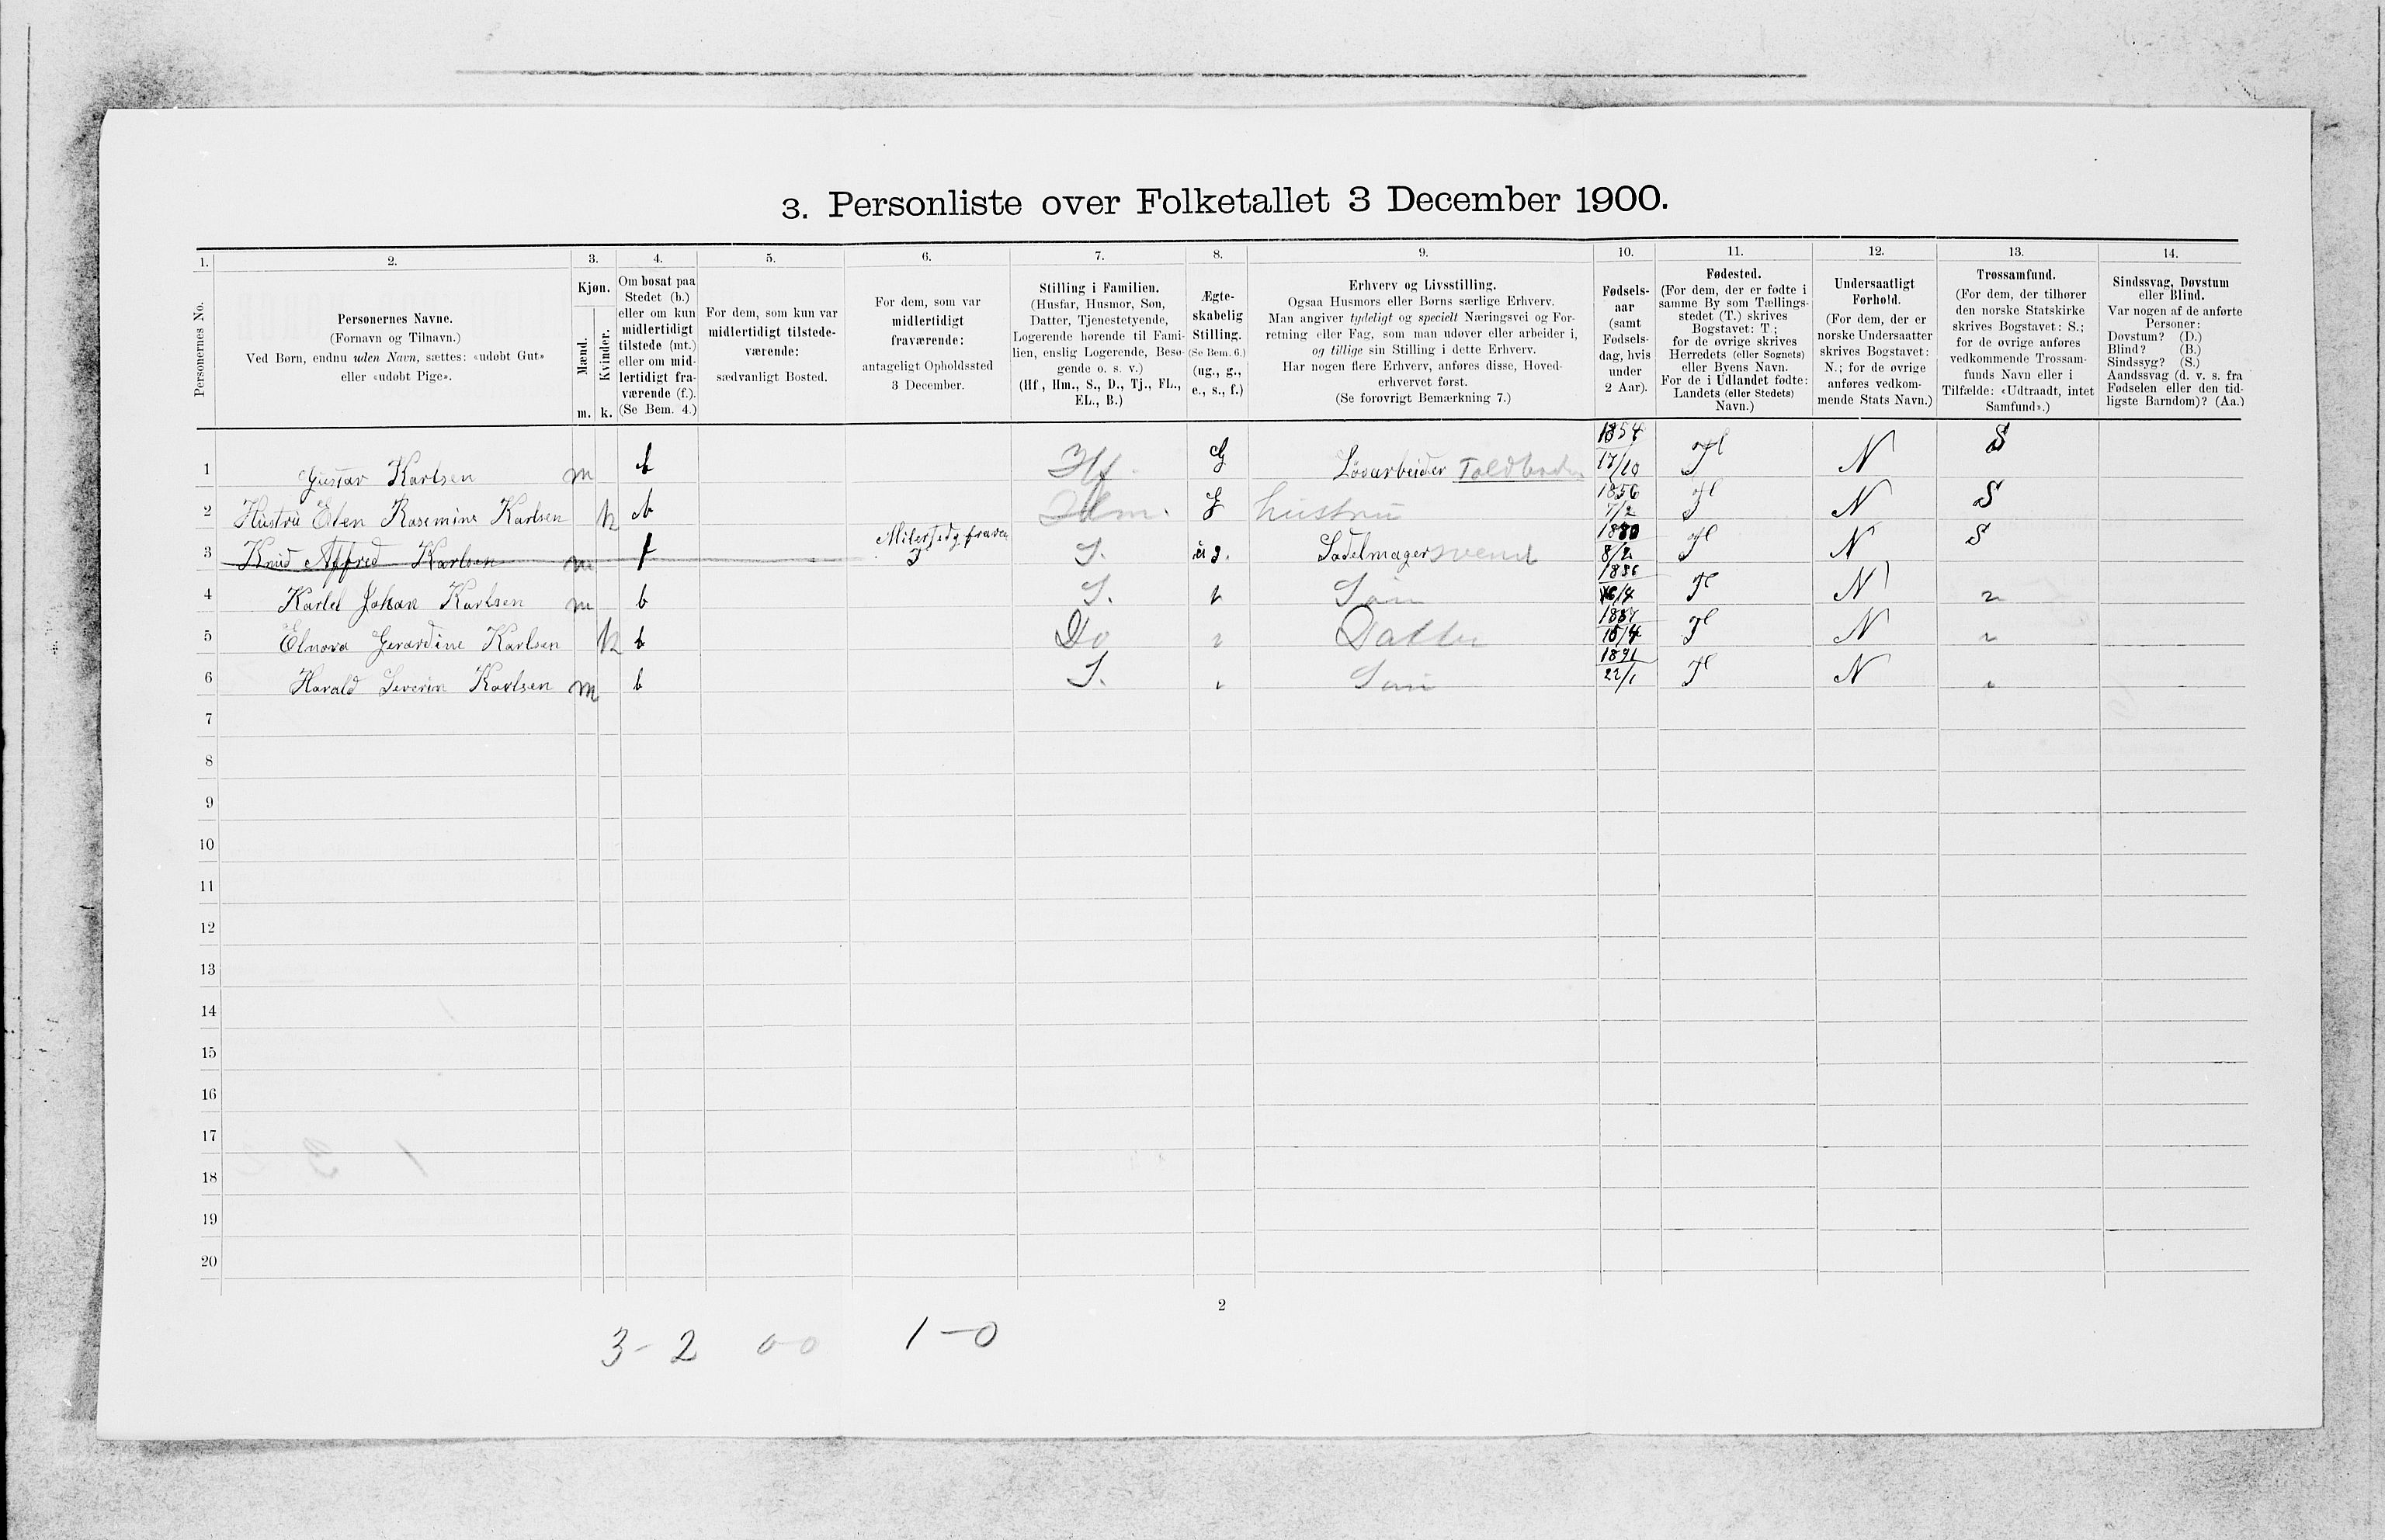 3. Personliste over Folketallet 3 December 1900.
1. 2. 3. 4. 5. 6. 7. 8. 9. 10. 11. 12. 13. 14.
Personernes No.
Personernes Navne.
(Fornavn og Tilnavn.)
Ved Børn, endnu uden Navn, sættes: «udøbt Gut»
eller «udøbt Pige».
Kjøn.
Mænd.
Kvinder.
m. k.
Om bosat paa
Stedet (b.)
eller om kun
midlertidigt
tilstede (mt.)
eller om mid-
lertidigt fra-
værende (f.).
(Se Bem. 4.)
For dem, som kun var
midlertidigt tilstede-
værende:
sædvanligt Bosted.
For dem, som var
midlertidigt
fraværende:
antageligt Opholdssted
3 December.
Stilling i Familien.
(Husfar, Husmor, Søn,
Datter, Tjenestetyende,
Logerende hørende til Fami-
lien, enslig Logerende, Besø-
gende o. s. v.)
(Hf., Hm., S., D., Tj., FL.,
EL., B.)
Ægte-
skabelig
Stilling.
(Se Bem. 6.)
(ug., g.,
e., s., f.)
Erhverv og Livsstilling.
Ogsaa Husmors eller Børns særlige Erhverv.
Man angiver tydeligt og specielt Næringsvei og For-
retning eller Fag, som man udøver eller arbeider i,
og tillige sin Stilling i dette Erhverv.
Har nogen flere Erhverv, anføres disse, Hoved-
erhvervet først.
(Se forøvrigt Bemærkning 7.)
Fødsels-
aar
(samt
Fødsels-
dag, hvis
under
2 Aar).
Fødested.
(For dem, der er fødte i
samme By som Tællings-
stedet (T.) skrives
Bogstavet: T.;
for de øvrige skrives
Herredets (eller Sognets)
eller Byens Navn.
For de i Udlandet fødte:
Landets (eller Stedets)
Navn.)
Undersaatligt
Forhold.
(For dem, der er
norske Undersaatter
skrives Bogstavet:
N.; for de øvrige
anføres vedkom-
mende Stats Navn.)
Trossamfund.
(For dem, der tilhører
den norske Statskirke
skrives Bogstavet: S.;
for de øvrige anføres
vedkommende Trossam-
funds Navn eller i
Tilfælde: «Udtraadt, intet
Samfund».)
Sindssvag, Døvstum
eller Blind.
Var nogen af de anførte
Personer:
Døvstum? (D.)
Blind? (B.)
Sindssyg? (S.)
Aandssvag (d. v. s. fra
Fødselen eller den tid-
ligste Barndom)? (Aa.)
1 Gustav Karlsen m b Hf. G Løsarbeider Toldboden 1854 17/10 N S
2 Hustru Elen Rasemine Karlsen k b Hm. g hustru 1856 7/2 N S
3 Knud Alfred Karlsen m f S. Sadelmagersvend 1880 8/2 N S
4 Karlel Johan Karlsen m b S. Søn 1886 N
5 Elnora Gerardine Karlsen k b Do Datter 1887 15/4 N
6 Harald Severin Karlsen m b S. Søn 1891 22/1 N
7
8
9
10
11
12
13
14
15
16
17
18
19
20
2
3-2 0-0 1-0